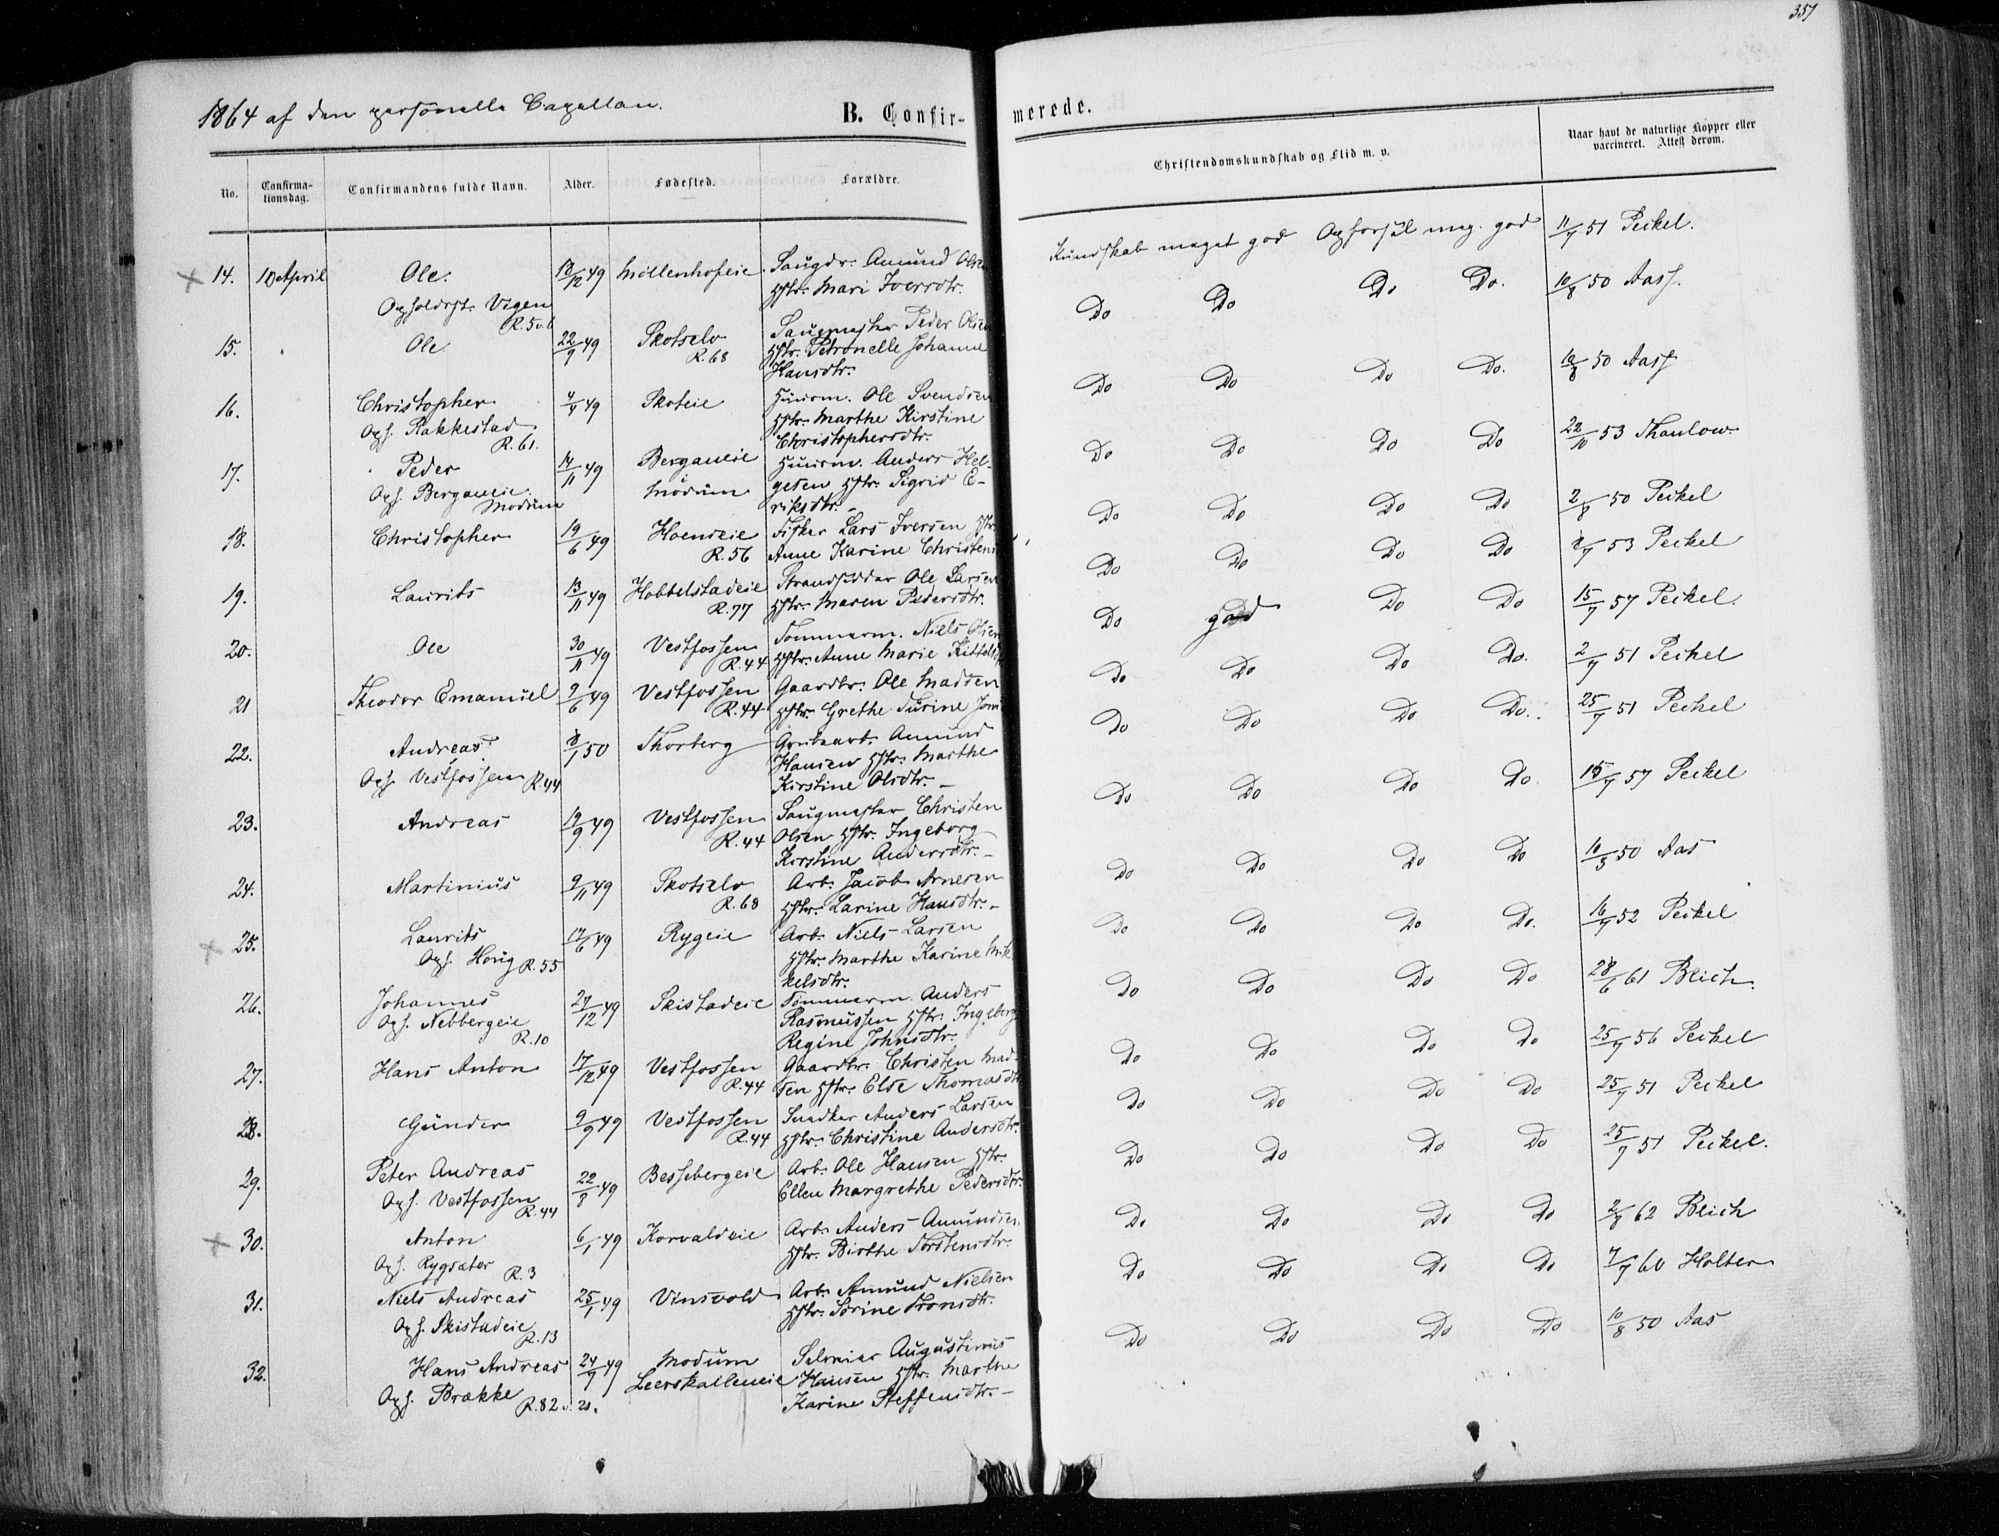 351
1864 af den personelle Capellan.
B. Confirmerede.
No.
Confirmationsdag.
Confirmandens fulde Navn.
Alder.
Fødested.
Forældre.
Christendomskundskab og Flid m. v.
Naar havt de naturlige Kopper eller vaccineret. Attest derom.
14. 10 April Ole. 18/12 49 Möllenhofeie Saugdr. Amund Olsen Kundskab meget god Opførsel meg. god 11/7 51 Peckel.
Opholdsst. Vegen Hstr. Mari Iversdtr.
R. 506
15. Ole 22/9 49 Skotselv Saugmester Peder Olsen Do Do Do Do. 10/8 50 Aass.
R. 68 Hstr. Petronelle Johanne
Hansdtr.
16. Christopher 49 Skoteie Huusm. Ole Svendsen Do Do Do Do. 10/8 50 Aass
Oph. Rakkestad Hstr. Marthe Kirstine
R. 61. Christophersdtr.
17. Peder 14/11 49 Berganeie Huusm. Anders Hel- Do Do Do Do 22/11 53 Thaulow.
Oph. Berganeie Modum gesen Hstr. Sigrid E-
Modum riksdtr.
18. Christopher 19/6 49 Hoenseie Fisker Lars Iversen Hstr. Do Do Do Do 2/8 50 Peckel
R. 56 Anne Karine Christens
19. Laurits 13/11 49 Hobbelstadeie Strandsidder Ole Larsen Do Do Do Do 53 Peckel
R. 77 Hstr. Maren Pedersdtr.
20. Ole 30/11 49 Vestfossen Tömmerm. Niels Olsen Do god Do Do 15/7 57 Peckel.
R. 44 Hstr. Anne Marie
21 Theodor Emanuel 9/6 49 Vestfossen Gaardbr. Ole Madsen Do Do Do Do. 2/7 51 Peckel
R. 44 Hstr. Grethe Turine
22. Andreas 8/1 50 Thorberg Grubearb. Amund Do Do Do Do. 25/7 51 Peckel
Oph. Vestfossen R. 44 Hansen Hstr. Marthe
Kirstine Olsdtr.
23. Andreas 19/9 49 Vestfossen Saugmester Christen Do Do Do Do. 15/7 57 Peckel
R. 44 Olsen Hstr. Ingeborg
Kirstine Andersdtr.
24. Martinius 9/11 49 Skotselv Arb. Jacob Arnesen Do Do Do Do 10/5 50 Aas
R. 68 Hstr. Larine Hansdtr.
25. Laurits 17/6 49 Rygeie Arb. Niels Larsen Do Do Do Do. 16/7 52 Peckel
Oph. Houg R. 55 Hstr. Marthe Karine Mik-
kelsdtr.
26. Johannes 27/12 49 Skistadeie Tömmerm. Anders Do Do Do Do 28/6 61 Blich.
Oph. Nebbergeie Rasmussen Hstr. Ingeborg
R. 10 Regine Johnsdtr.
27. Hans Anton 17/12 49 Vestfossen Gaardbr. Christen Mad- Do Do Do Do 25/7 56 Peckel
R. 44 sen Hstr. Else Thomasdtr
28. Gunder 9/9 49 Vestfossen Snedker Anders Larsen Do Do Do Do 25/7 51 Peckel
R. 44 Hstr. Christine Andersdtr.
29. Peter Andreas 22/8 49 Bessebergeie Arb. Ole Hansen Hstr. Do Do Do Do 25/7 51 Peckel.
Oph. Vestfossen Ellen Margrethe Pedersdtr.
R. 44
30. Anton 6/1 49 Korvaldeie Arb. Anders Amundsen Do Do Do Do 2/8 62 Blich
Oph. Rygsæter Hstr. Birthe Torstensdtr.
R. 3
31. Niels Andreas 25/1 49 Vinsvold Arb. Amund Nielsen Do Do Do Do 7/7 60 Holter
Oph. Skistadeie Hstr. Sörine Tronsdtr.
R. 13
32. Hans Andreas 24/9 49 Modum Selveier Augustinus Do Do Do Do 10/8 50 Aas
Oph. Brække Leerskalleneie Hansen Hstr. Marthe
R. 82 Karine Steffensdtr.